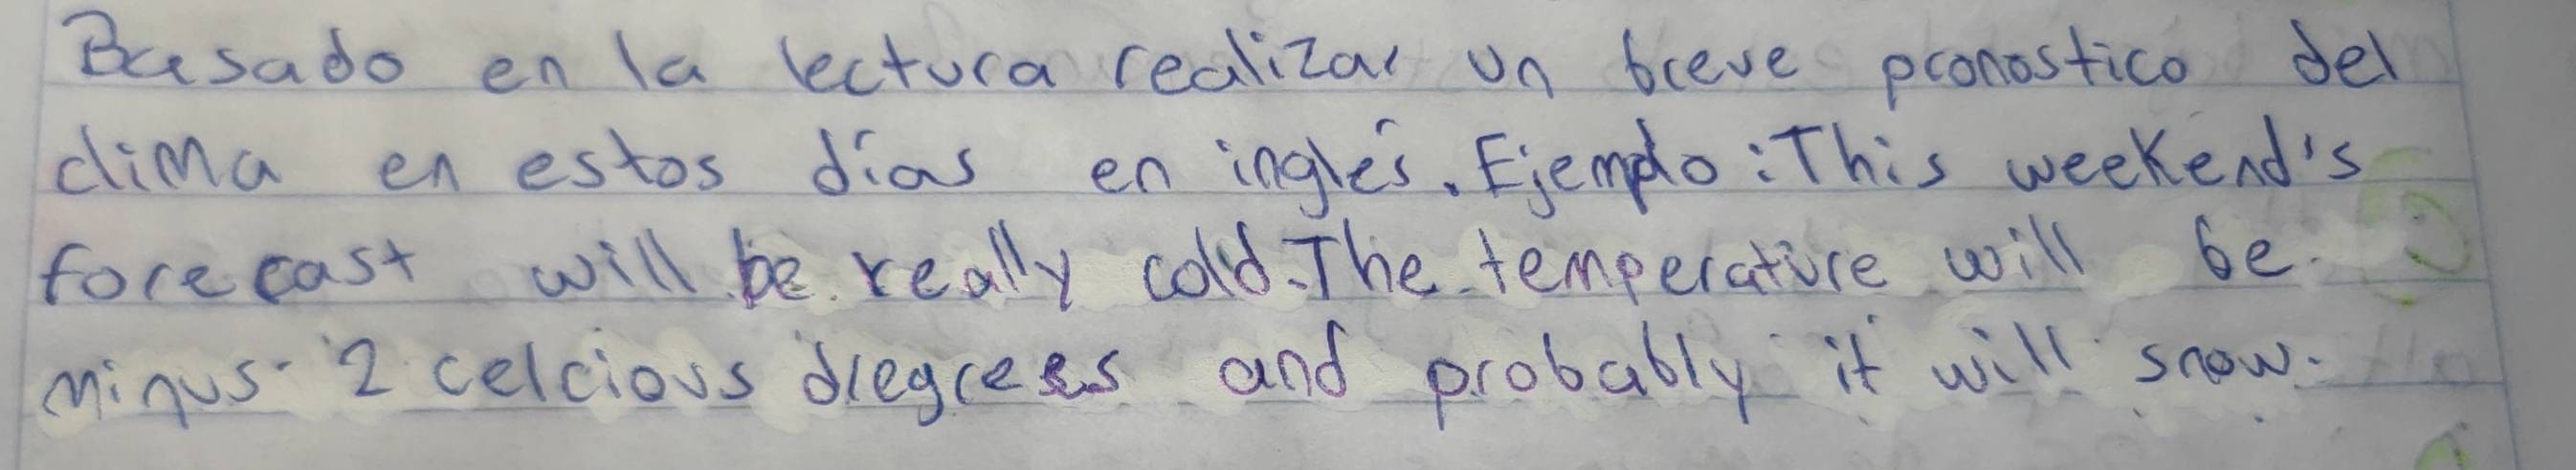 Basado en la lectura realizar un breve pronostico del
clima en estos días en inglés. Ejemplo: This weekend's
forecast will be really cold. The temperature will be
minus 2 celcious dregrees and probably it will snow.